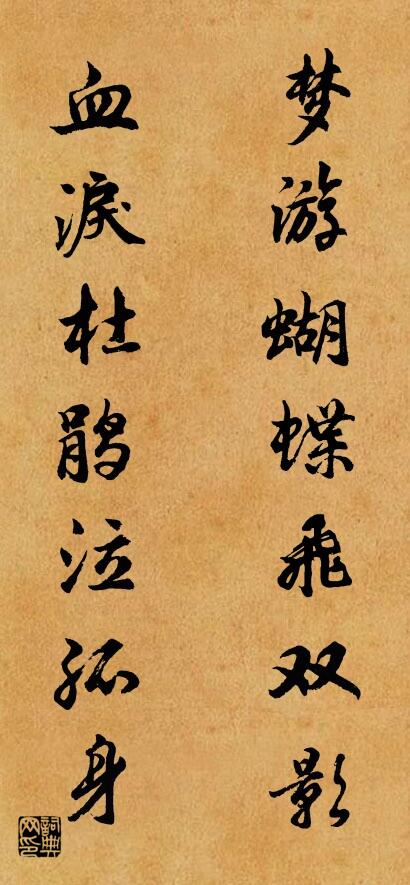 梦游蝴蝶飞双影
血淚杜鹃泣孤身
詞典网印